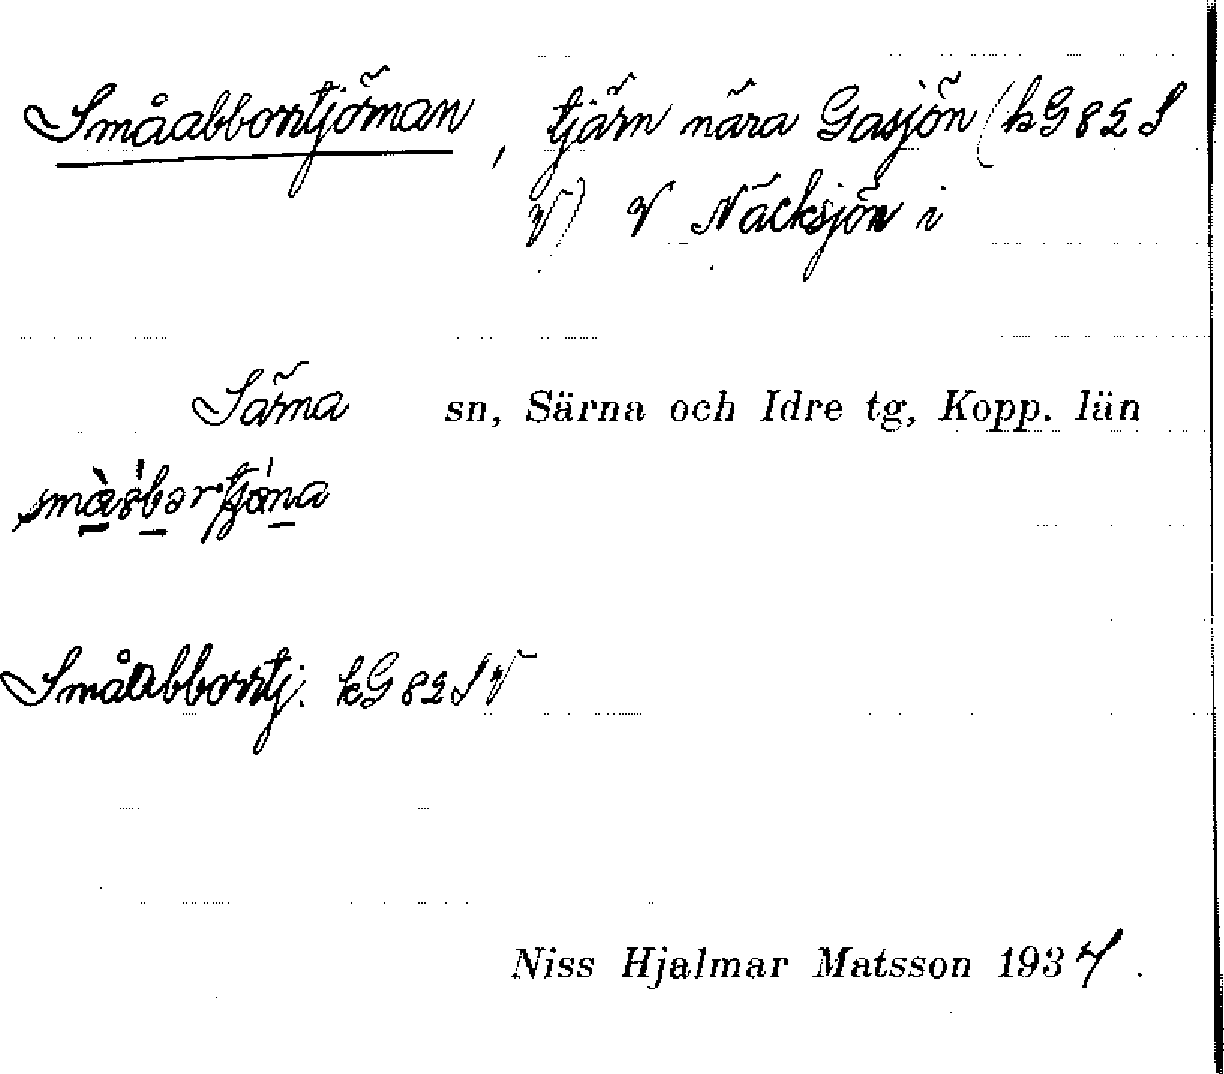 Småabborrtjörnan, tjärn nära Gasjön (kG 82 S
V) V Näcksjön i
Särna sn, Särna och Idre tg, Kopp. län
Småabborrtj. kG 82 S V
Niss Hjalmar Matsson 1937.